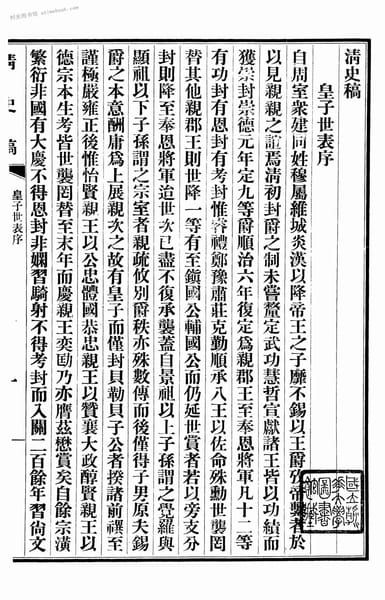 清史稿
皇子世表序
自周室衆建同姓穆屬維城炎漢以降帝王之子靡不錫以王爵攷帝繫者於
以見親親之誼焉清初封爵之制未嘗釐定武功慧哲宣獻諸王皆以功績而
獲崇封崇德元年定九等爵順治六年復定爲親郡王至奉恩將軍凡十二等
有功封有恩封有考封惟睿禮鄭豫肅莊克勤順承八王以佐命殊勳世襲罔
替其他親郡王則世降一等有至鎭國公輔國公而仍延世賞者若以旁支分
封則降至奉恩將軍迨世次已盡不復承襲蓋自景祖以上子孫謂之覺羅與
顯祖以下子孫謂之宗室者親疏攸別爵秩亦殊數傳而後僅得子男原夫錫
爵之本意酬庸爲上展親次之故有皇子而僅封貝勒貝子公者揆諸前禩至
謹極嚴雍正後惟怡賢親王以公忠體國恭忠親王以贊襄大政醇賢親王以
德宗本生考皆世襲罔替至末年而慶親王奕劻乃亦膺茲懋賞矣自餘宗潢
繁衍非國有大慶不得恩封非嫻習騎射不得考封而入關二百餘年習尚文
清史稿
皇子世表序
一